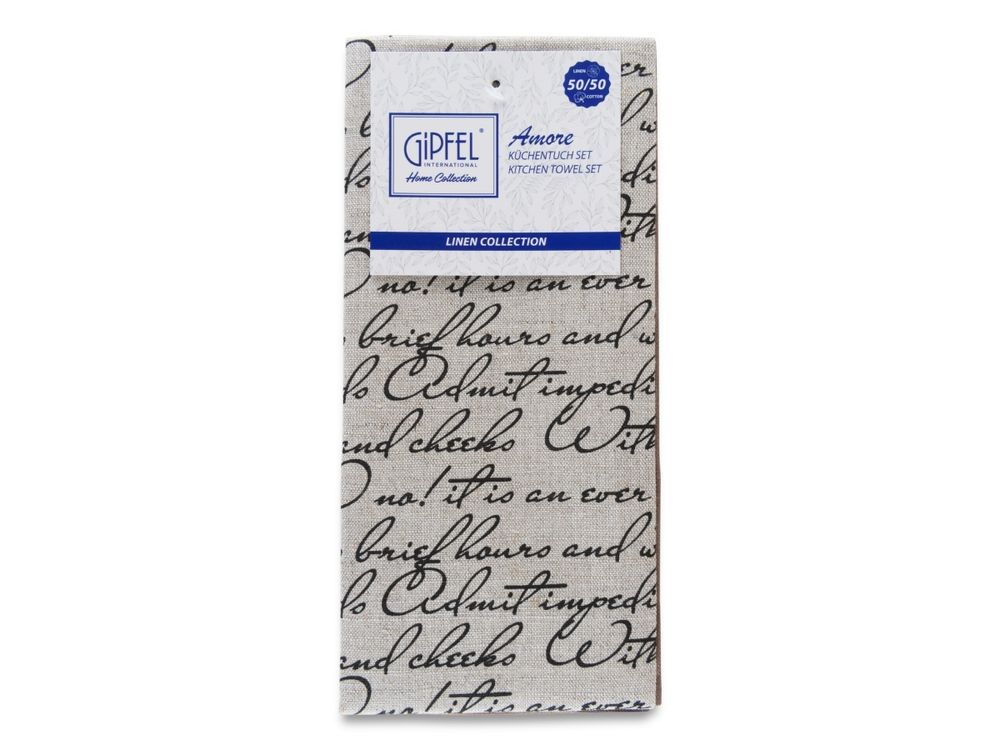 LINEN
50/50
COTTON
GiPFEL®
INTERNATIONAL
Home Collection
Amore
KÜCHENTUCH SET
KITCHEN TOWEL SET
LINEN COLLECTION
no! it is an ever
brief hours and w
ds Admit impedi
and cheeks With
O no! it is an ever
brief hours and w
ds Admit impedi
and cheeks With
O no! it is an ever